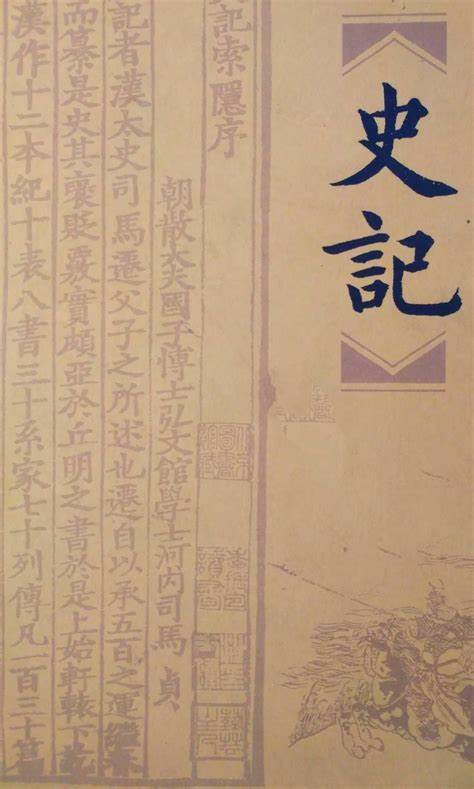 史記
記索隱序
朝散大夫國子博士弘文館學士河内司馬貞
記者漢太史司馬遷父子之所述也遷自以承五百之運繼
而纂是史其襃貶覈實頗亞於丘明之書於是上始軒轅下
漢作十二本紀十表八書三十系家七十列傳凡一百三十篇